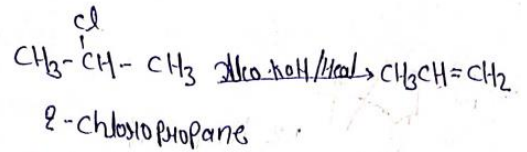 Cl
CH3-CH-CH3 alco.KOH/Heat→ CH3CH=CH2
2-chloropropane